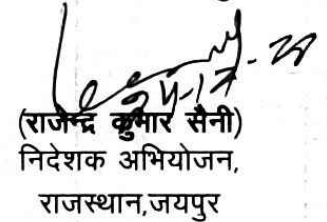 (राजेन्द्र कुमार सैनी)
निदेशक अभियोजन,
राजस्थान,जयपुर